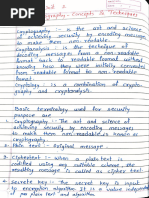 Cryptography - Concepts & Techniques
Cryptography :- is the art and science
of achieving security by encoding message
to make them non-readable.
Cryptanalysis :- is the technique of
decoding messages from non-readable
format back to readable format without
knowing how they were initially converted
from readable format to non-readable
format.
Cryptology :- is a combination of crypto-
graphy and cryptanalysis.
Basic terminology used for security
purpose are
Cryptography : The art and science of
achieving security by encoding messages
to make them non-readable
text : original message
Ciphertext : when a plain text is
codified using any scheme, the
resulting message is called as cipher text.
Secrete key : The secret key is input
encryption algorithm. It is a value independent
of plain text and algorithm.